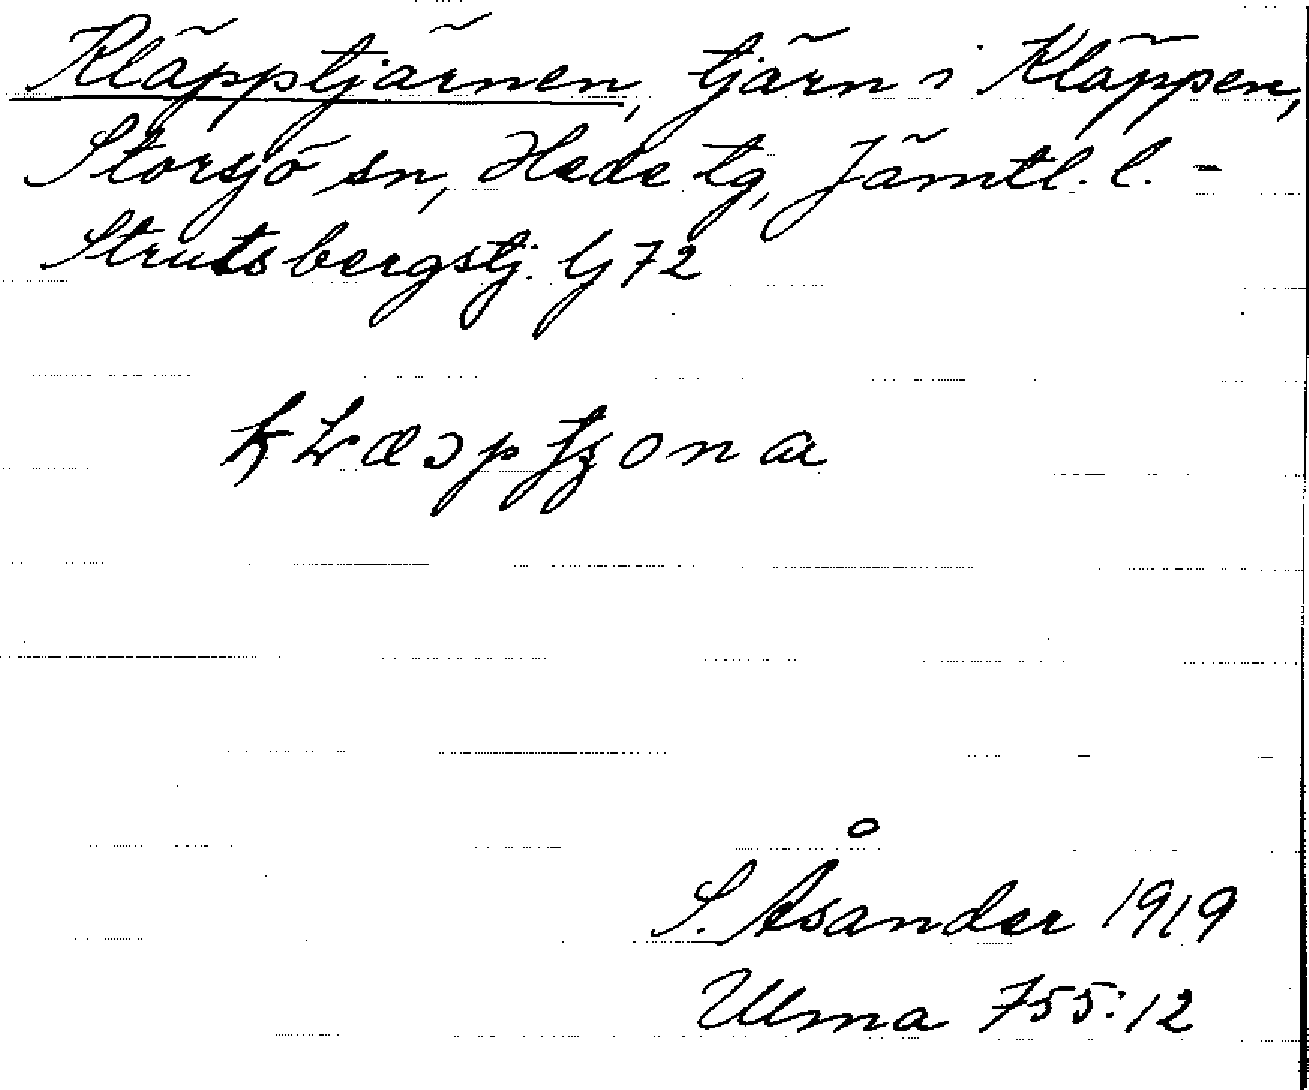 Kläpptjärnen, tjärn i Kläppen,
Storsjö sn, Hede tg, Jämtl. l. -
Strutsbergstj. Gj 72
S. Åsander 1919
Ulma 755:12